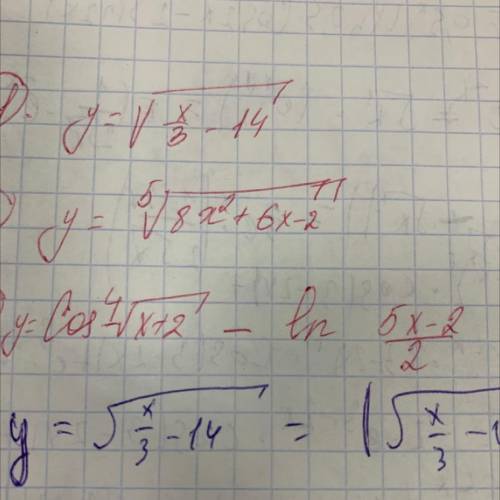 1). y = √(x/3 - 14)
y = ⁵√(8x² + 6x - 2)
y = Cos ⁴√(x+2) - ln (5x-2)/2
y = √(x/3 - 14) = (√(x/3 -